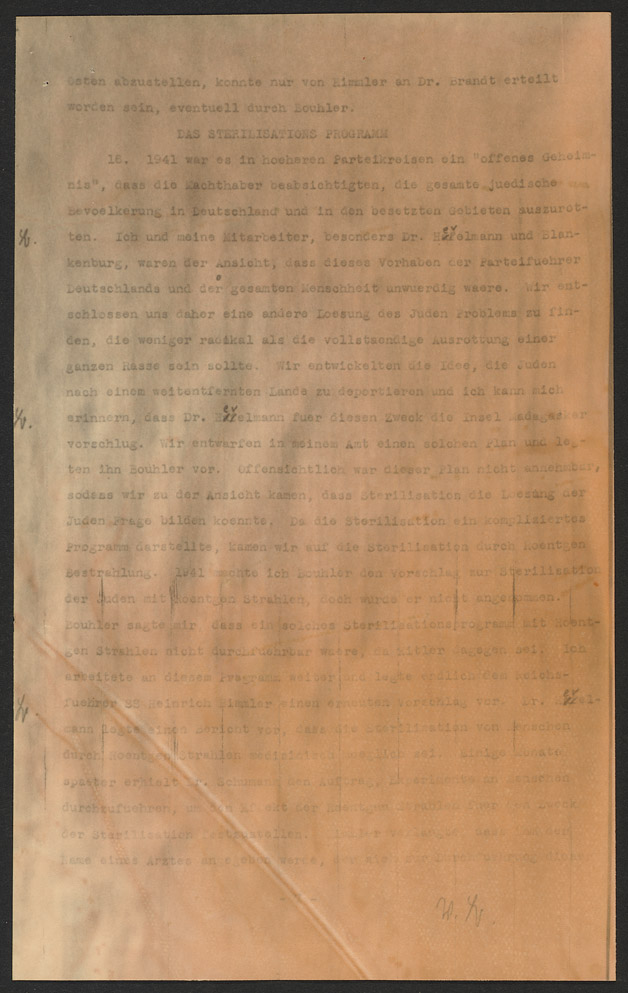 Osten abzustellen, konnte nur von Himmler an Dr. Brandt erteilt
worden sein, eventuell durch Bouhler.
DAS STERILISATIONS PROGRAMM
16. 1941 war es in hoeheren Parteikreisen ein "offenes Geheim-
nis", dass die Machthaber beabsichtigten, die gesamte juedische
Bevoelkerung in Deutschland und in den besetzten Gebieten auszurot-
ten. Ich und meine Mitarbeiter, besonders Dr. Hevelmann und Blan-
kenburg, waren der Ansicht, dass dieses Vorhaben der Parteifuehrer
Deutschlands und der gesamten Menschheit unwuerdig waere. Wir ent-
schlossen uns daher eine andere Loesung des Juden Problems zu fin-
den, die weniger radikal als die vollstaendige Ausrottung einer
ganzen Rasse sein sollte. Wir entwickelten die Idee, die Juden
nach einem weitentfernten Lande zu deportieren und ich kann mich
erinnern, dass Dr. Hevelmann fuer diesen Zweck die Insel Madagaskar
vorschlug. Wir entwarfen in meinem Amt einen solchen Plan und leg-
ten ihn Bouhler vor. Offensichtlich war dieser Plan nicht annehmbar,
sodass wir zu der Ansicht kamen, dass Sterilisation die Loesung der
Juden Frage bilden koennte. Da die Sterilisation ein kompliziertes
Programm darstellte, kamen wir auf die Sterilisation durch Roentgen
Bestrahlung. 1941 machte ich Bouhler den Vorschlag zur Sterilisation
der Juden mit Roentgen Strahlen, doch wurde er nicht angenommen.
Bouhler sagte mir dass ein solches Sterilisationsprogramm mit Roent-
gen Strahlen nicht durchfuehrbar waere, da Hitler dagegen sei. Ich
arbeitete an diesem Programm weiter und legte endlich dem Reichs-
fuehrer SS Heinrich Himmler einen erneuten Vorschlag vor. Dr. Hevel-
mann legte einen Bericht vor, dass die Sterilisation von Menschen
durch Roentgen Strahlen medizinisch moeglich sei. Einige Monate
spaeter erhielt Dr. Schumann den Auftrag, Experimente an Menschen
durchzufuehren, um den Effekt der Roentgen Strahlen fuer den Zweck
der Sterilisation festzustellen.
Name eines Arztes angegeben werde,